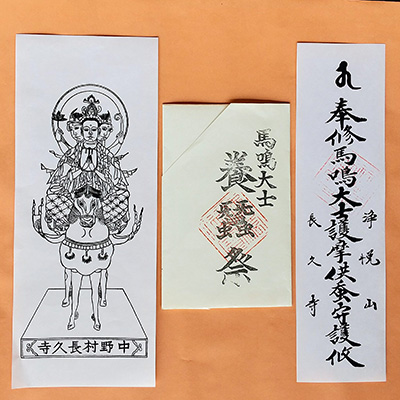 中野村長久寺
馬鳴大士
養蠶祭
奉修馬鳴大士護摩供蚕守護攸
浄悦山
長久寺